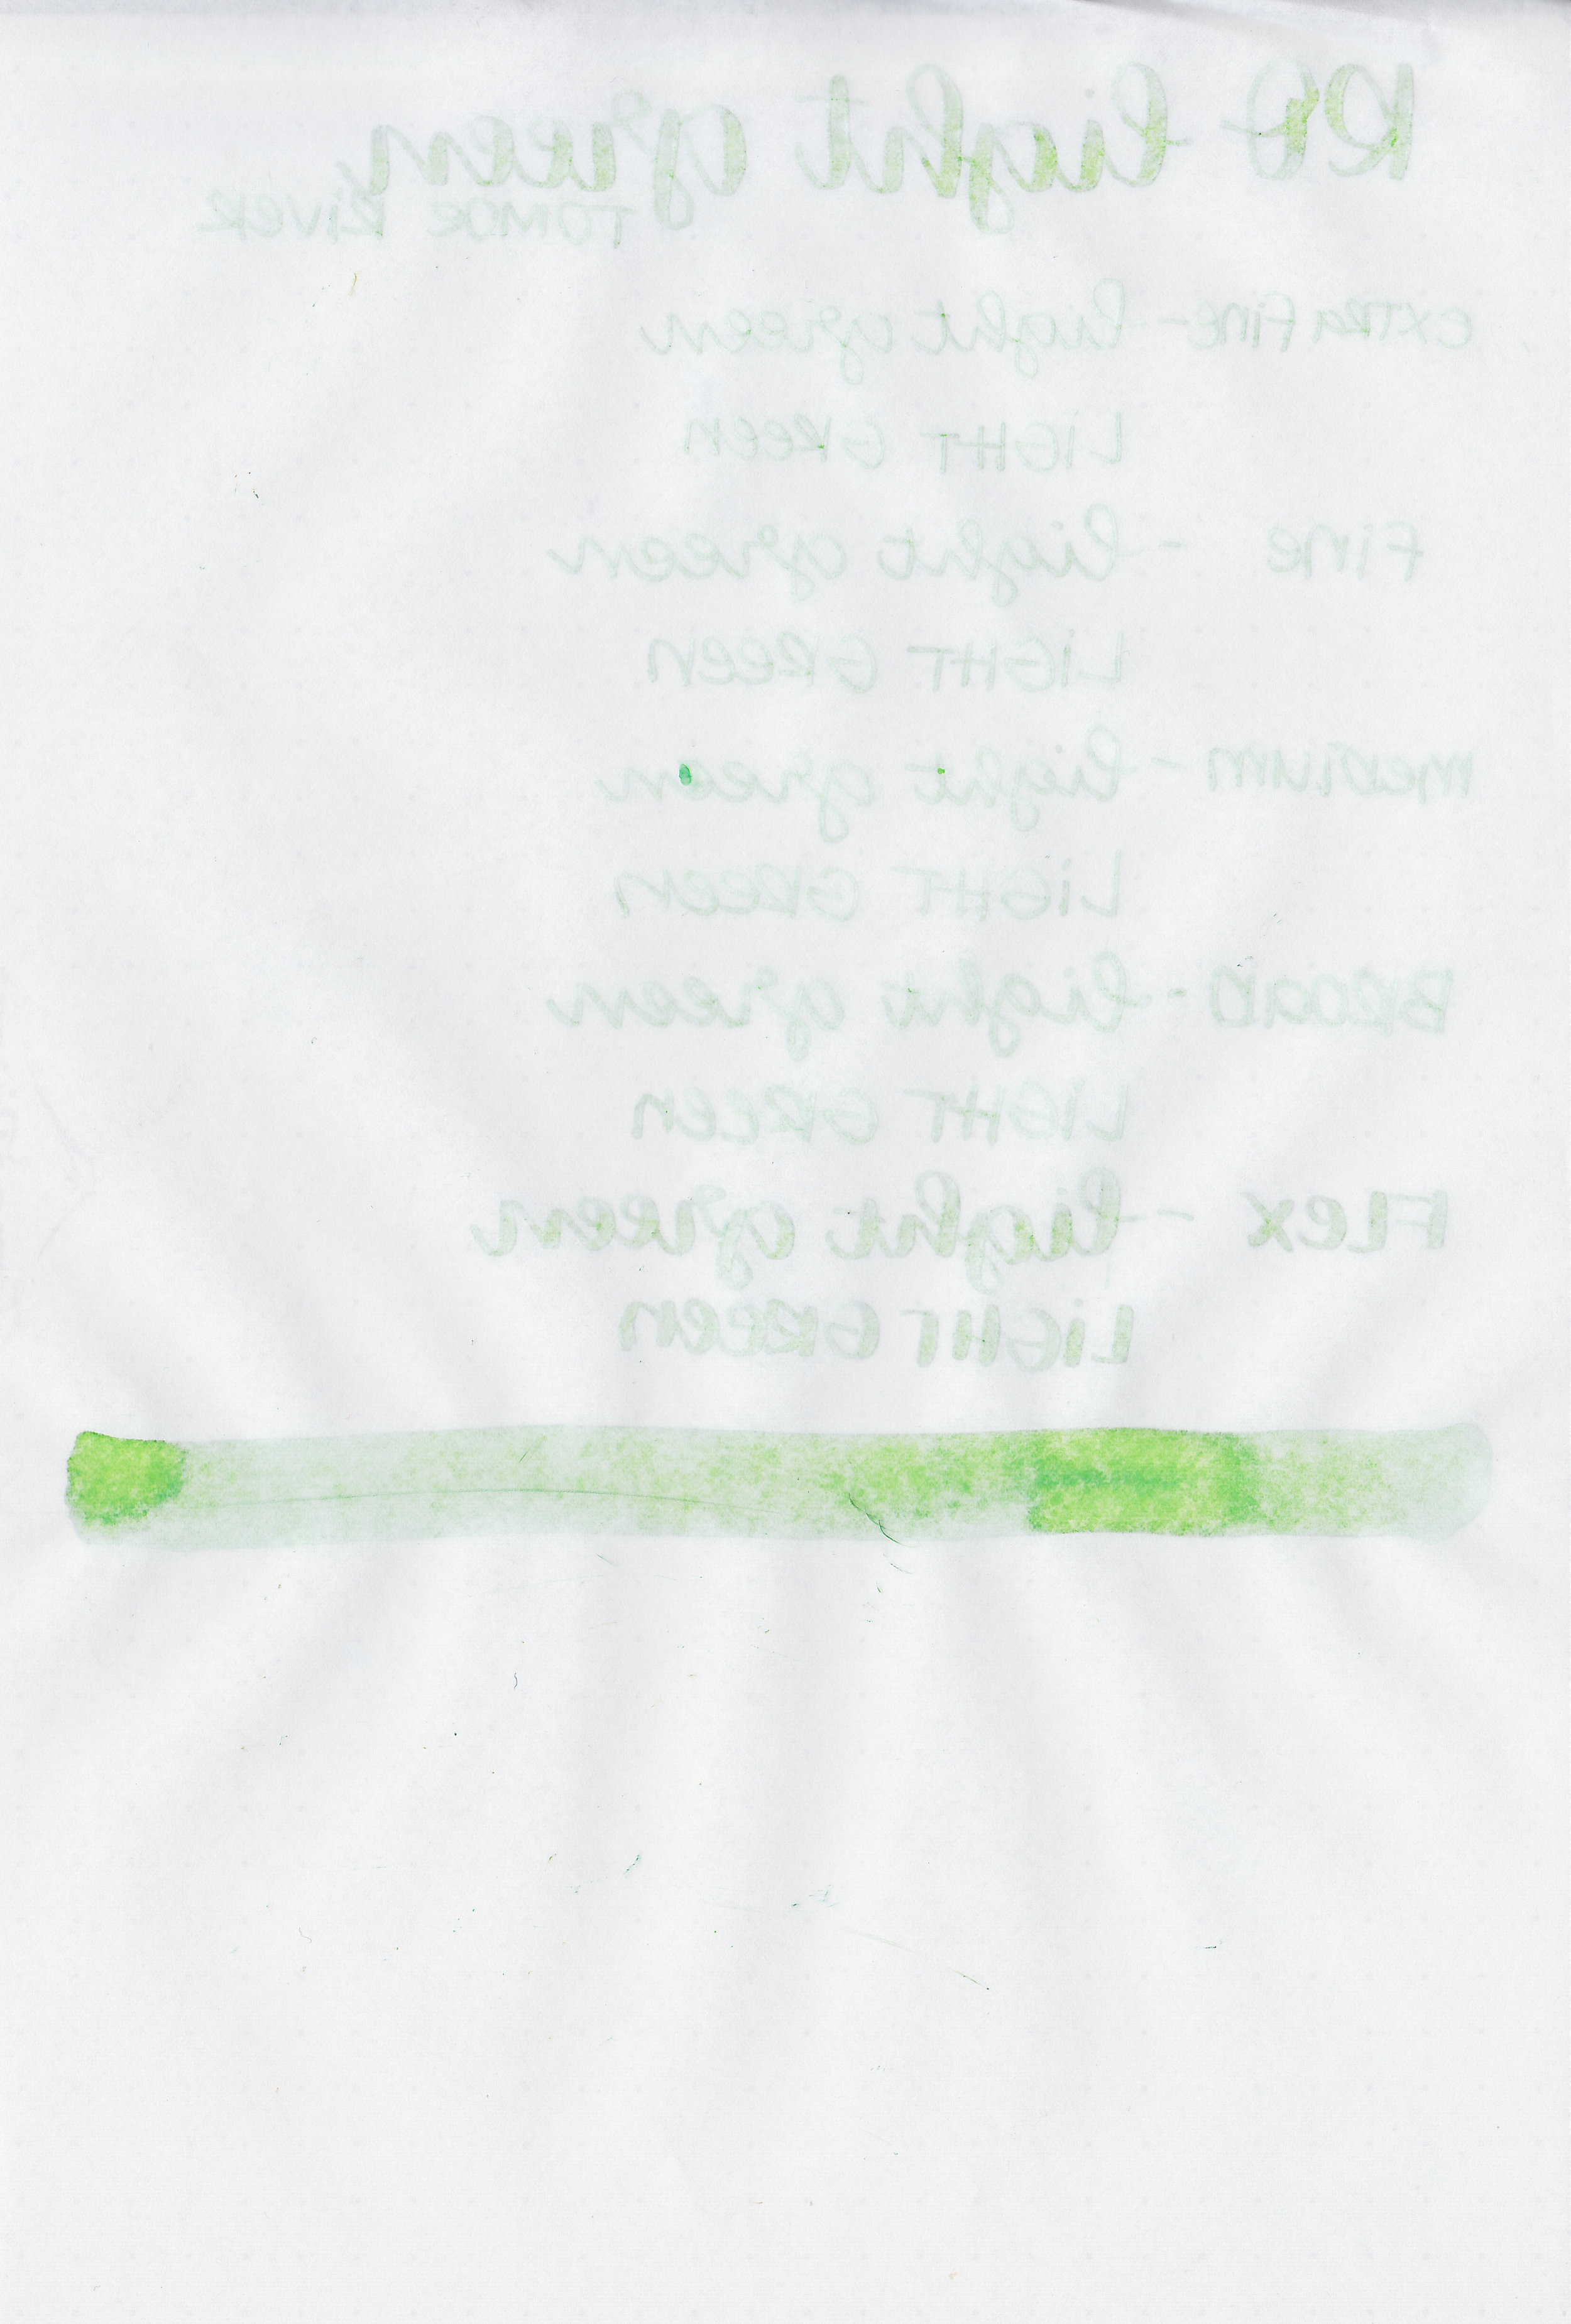 RO light green
TOMOE RIVER
extra fine - light green
LIGHT GREEN
fine - light green
LIGHT GREEN
medium - light green
LIGHT GREEN
BROAD - light green
LIGHT GREEN
FLEX - light green
LIGHT GREEN